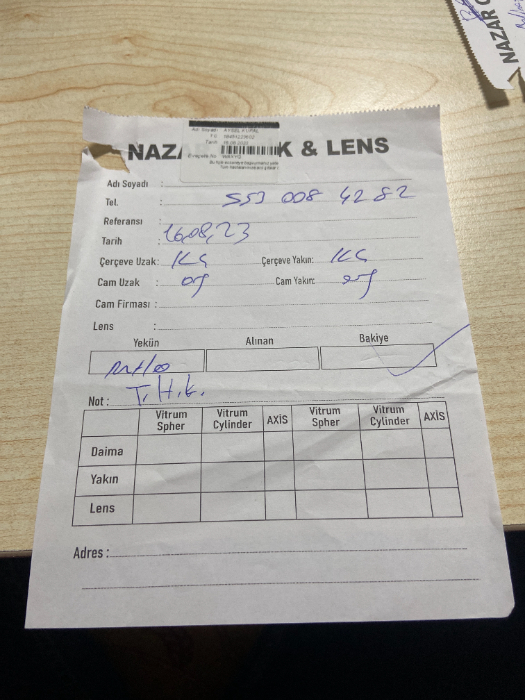 NAZAR
NAZA K & LENS
Adı Soyadı :
Tel. : 553 008 42 82
Referansı :
Tarih : 16.08.23
Çerçeve Uzak: KG Çerçeve Yakın: KG
Cam Uzak : org Cam Yakın: org
Cam Firması :
Lens :
Yekün Alınan Bakiye
Not : T.H.K.
Vitrum Spher Vitrum Cylinder AXİS Vitrum Spher Vitrum Cylinder AXİS
Daima
Yakın
Lens
Adres :